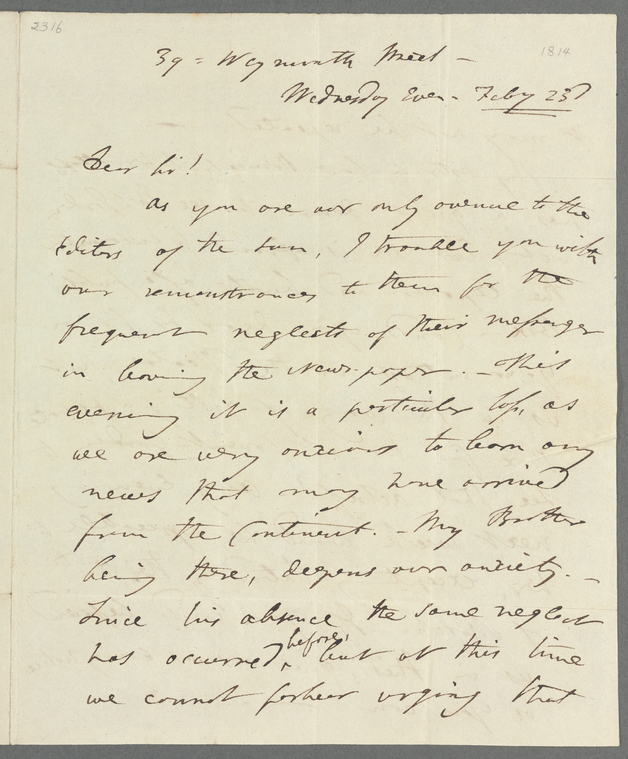 2316
1814
39 = Weymouth Street -
Wednesday Even - Feby 23d
Dear Sir!
As you are our only avenue to the
Editors of the Sun, I trouble you with
our remonstrances to them for the
frequent neglects of their messenger
in leaving the Newspaper. - This
evening it is a particular loss, as
we are very anxious to learn any
news that may have arrived
from the Continent. - My Brother
being there, deepens our anxiety. -
Since his absence the same neglect
has occurred before, but at this time
we cannot forbear urging that